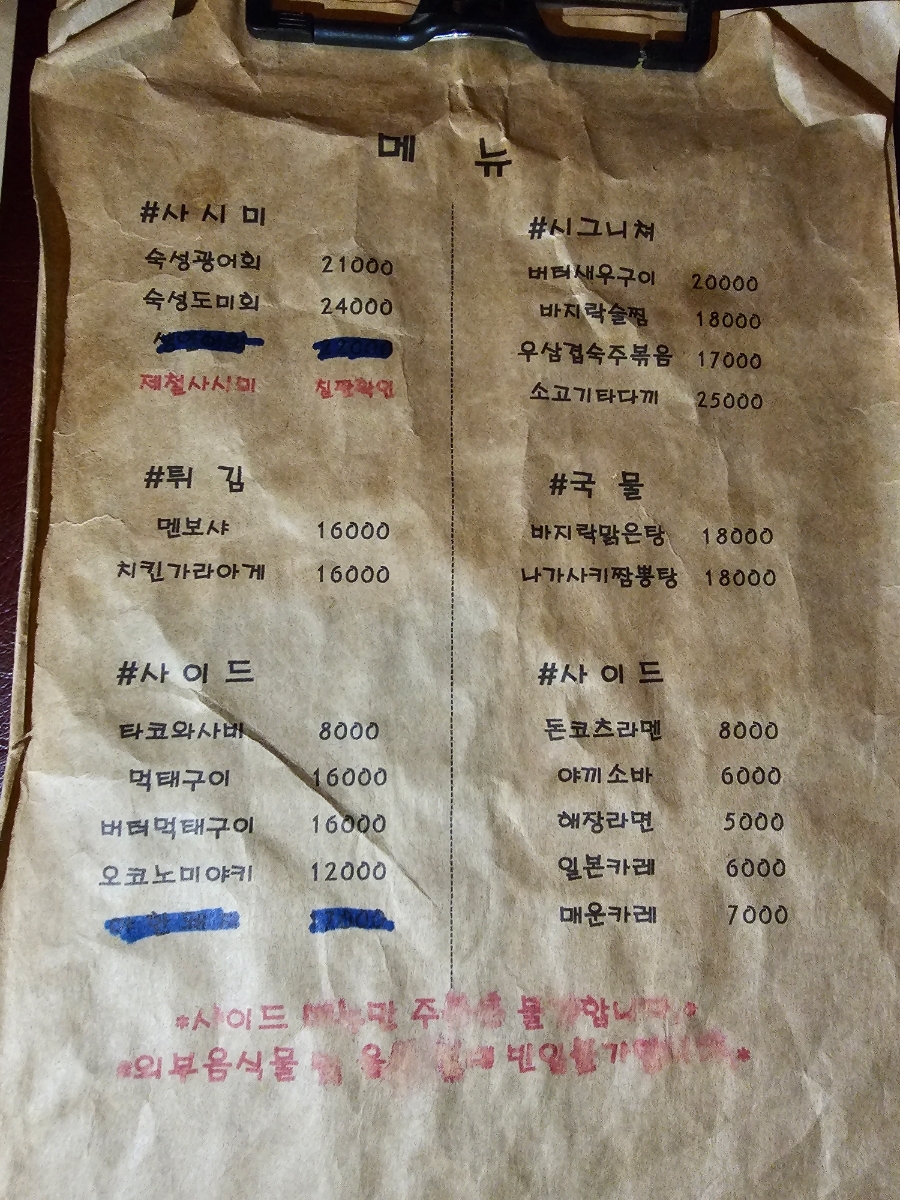 메 뉴
#사 시 미
숙성광어회 21000
숙성도미회 24000
제철사시미 칠판확인
#튀 김
멘보샤 16000
치킨가라아게 16000
#사 이 드
타코와사비 8000
먹태구이 16000
버터먹태구이 16000
오코노미야키 12000
#시그니쳐
버터새우구이 20000
바지락술찜 18000
우삼겹숙주볶음 17000
소고기타다끼 25000
#국 물
바지락맑은탕 18000
나가사키짬뽕탕 18000
#사 이 드
돈코츠라멘 8000
야끼소바 6000
해장라면 5000
일본카레 6000
매운카레 7000
*사이드
*외부음식물